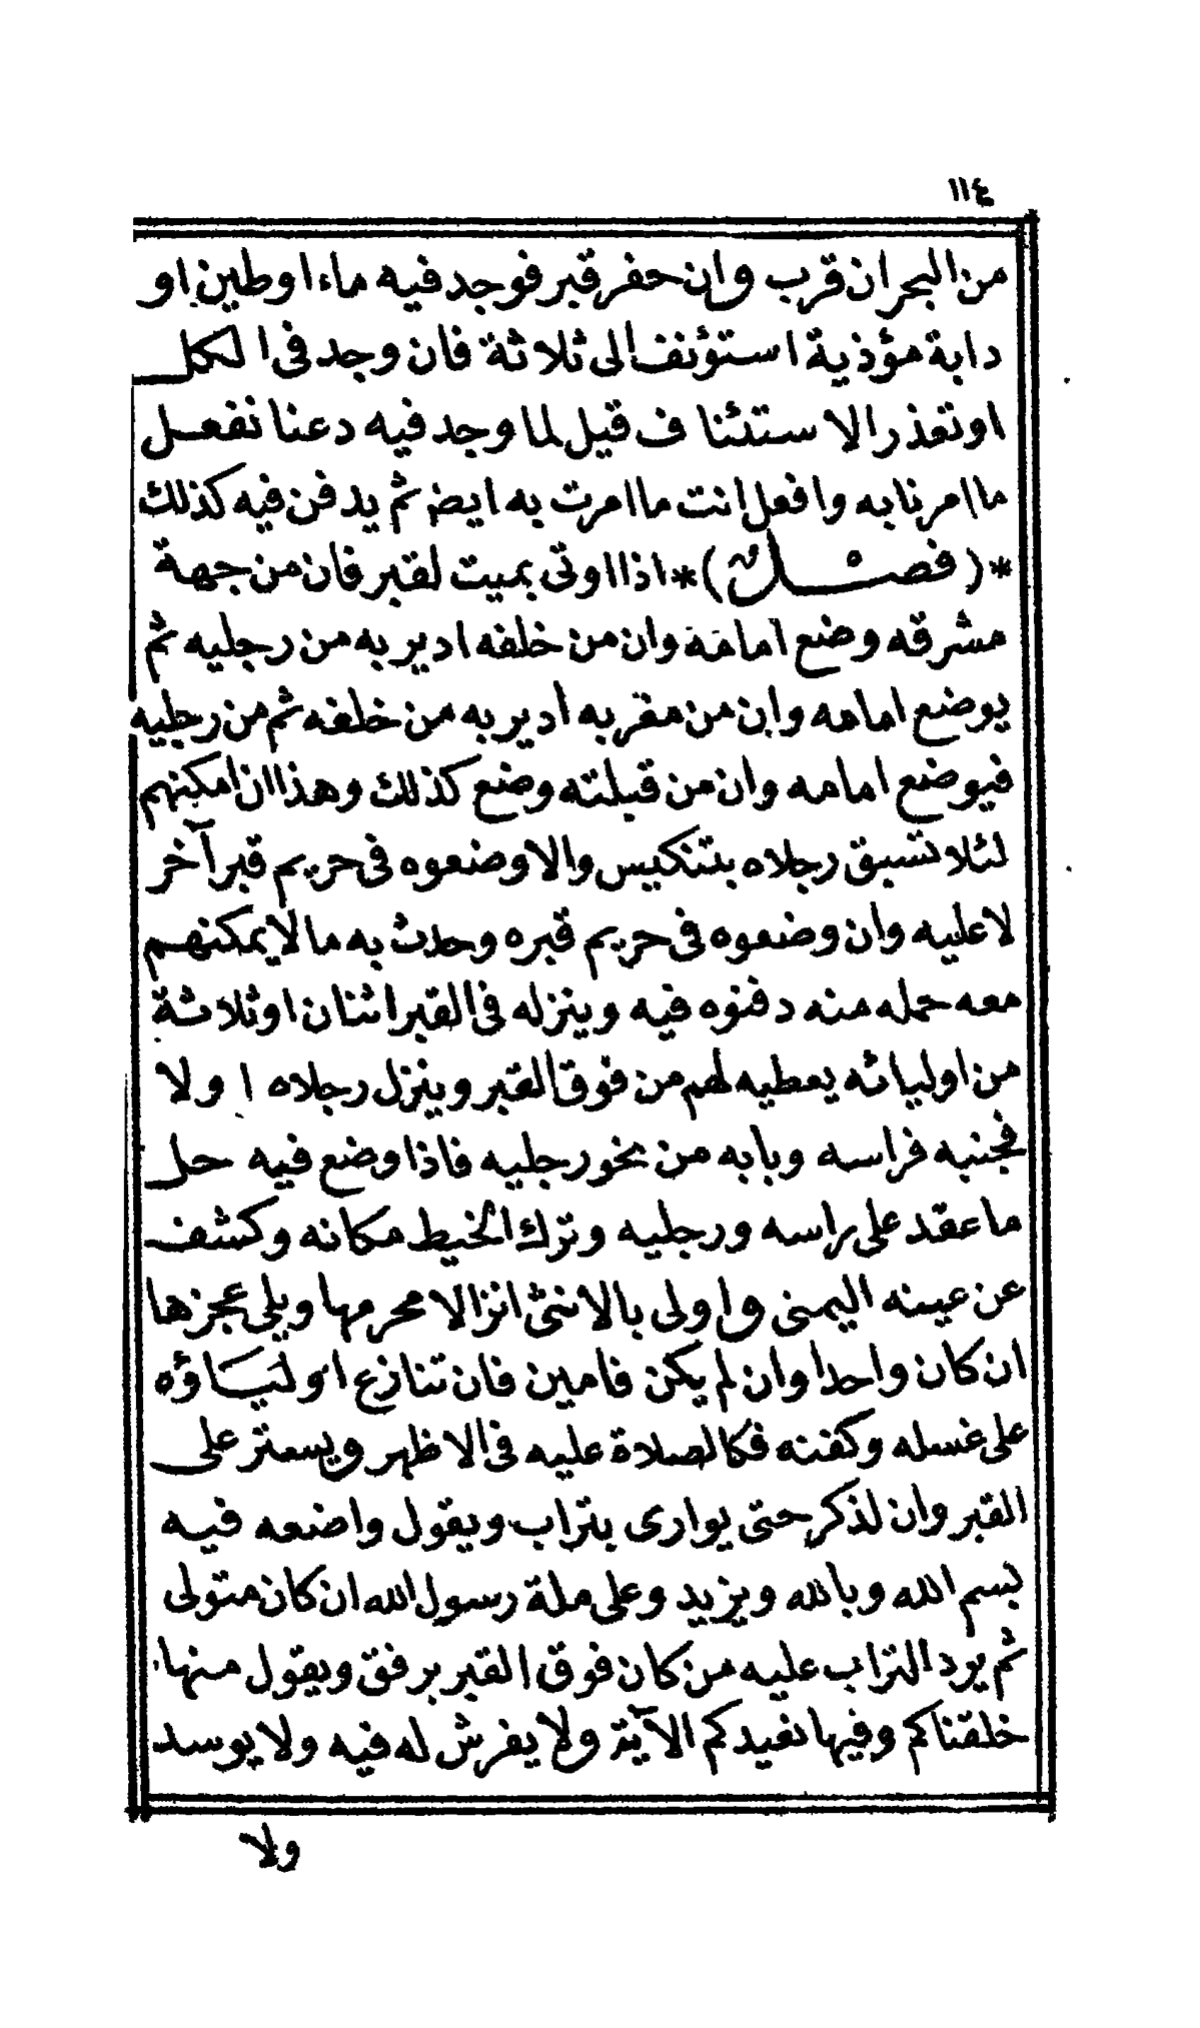 ١١٤
من البحر ان قرب وان حفر قبر فوجد فيه ماء او طين او
دابة مؤذية استؤنف الى ثلاثة فان وجد فى الكل
او تعذر الاستئناف قيل لما وجد فيه دعنا نفعل
ما امرنا به وافعل انت ما امرت به ايض ثم يدفن فيه كذلك
*(فصل)* اذا اوتى بميت لقبر فان من جهة
مشرقه وضع امامه وان من خلفه ادير به من رجليه ثم
يوضع امامه وان من مغربه ادير به من خلفه ثم من رجليه
فيوضع امامه وان من قبلته وضع كذلك وهذا ان امكنهم
لئلا تسبق رجلاه بتنكيس والا وضعوه فى حريم قبر آخر
لا عليه وان وضعوه فى حريم قبره وحدث به ما لا يمكنهم
معه حمله منه دفنوه فيه وينزله فى القبر اثنان او ثلاثة
من اوليائه يعطيه لهم من فوق القبر وينزل رجلاه اولا
فجنبه فراسه وبابه من نحو رجليه فاذا وضع فيه حل
ما عقد على راسه ورجليه وترك الخيط مكانه وكشف
عن عينه اليمنى واولى بالانثى انزالا محرمها ويلى عجزها
ان كان واحدا وان لم يكن فامين فان تنازع اولياؤه
على غسله وكفنه فكالصلاة عليه فى الاظهر ويستر على
القبر وان لذكر حتى يوارى بتراب ويقول واضعه فيه
بسم الله وبالله ويزيد وعلى ملة رسول الله ان كان متولى
ثم يرد التراب عليه من كان فوق القبر برفق ويقول منها
خلقناكم وفيها نعيدكم الآية ولا يفرش له فيه ولا يوسد
ولا